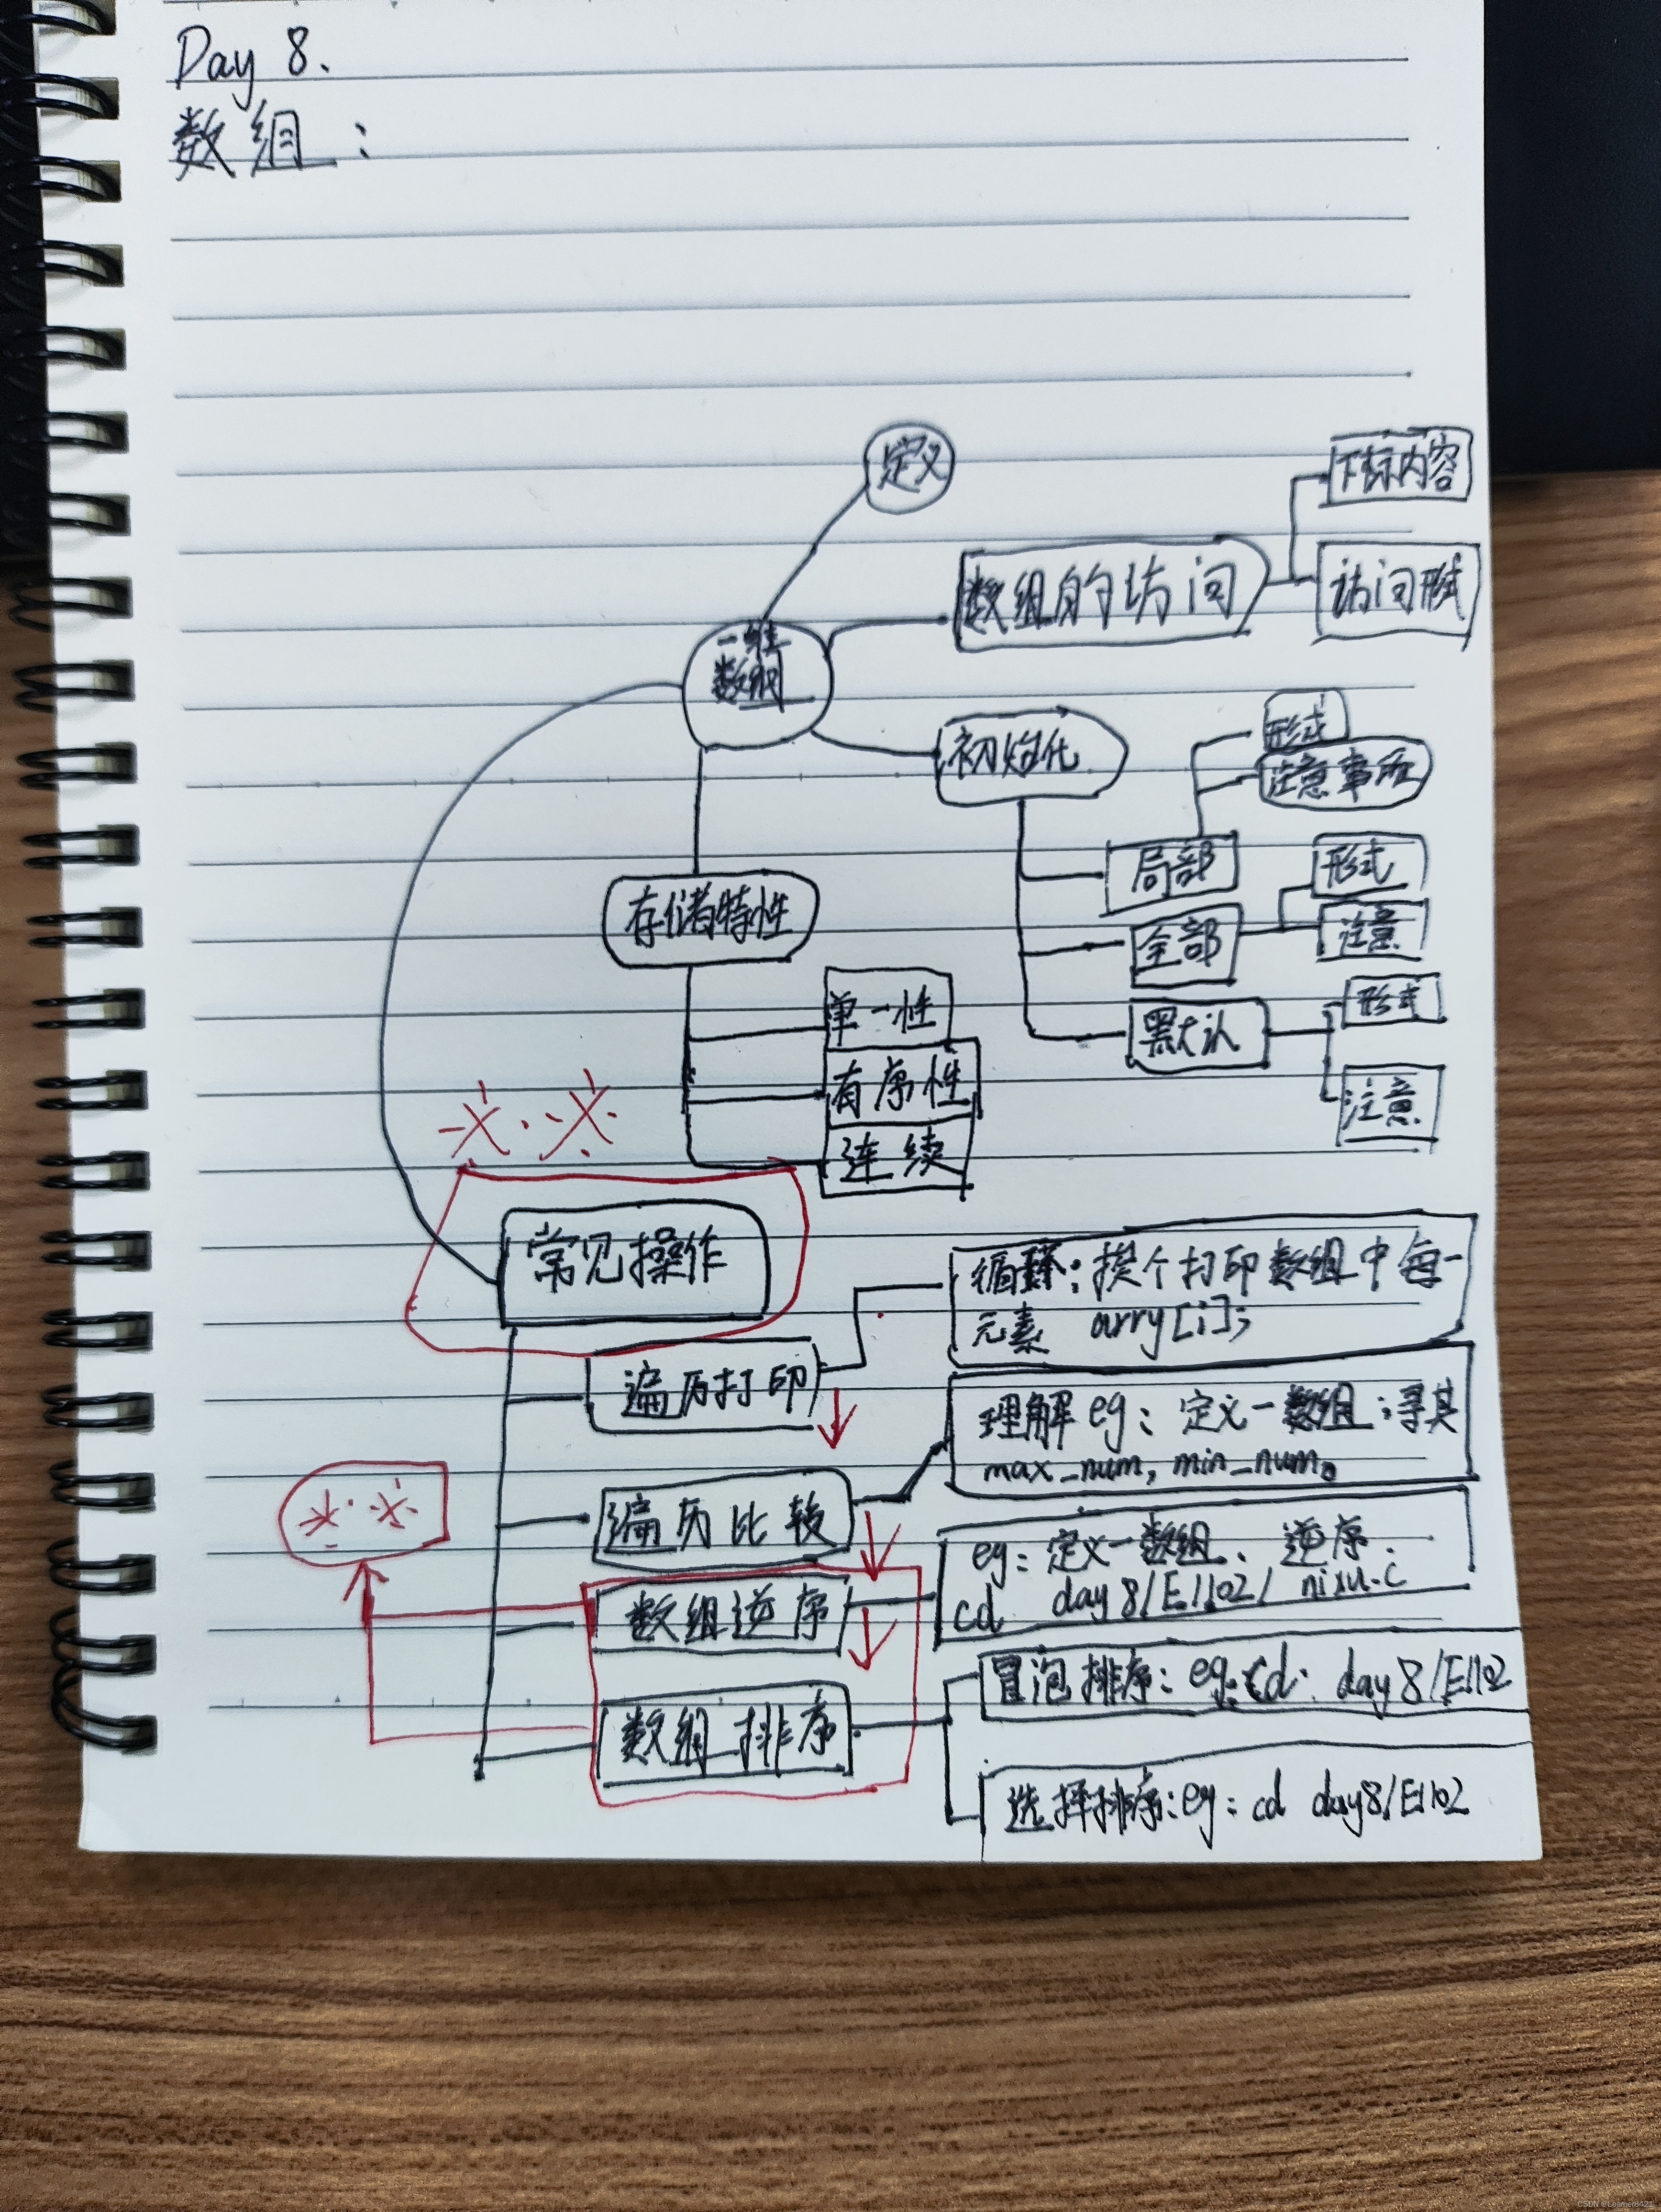 Day 8.
数组：
定义
下标内容
数组的访问
访问形式
一维
数组
初始化
形式
注意事项
局部
形式
存储特性
全部
注意
单一性
形式
默认
有序性
注意
连续
常见操作
循环：挨个打印数组中每一
元素 arry[i];
遍历打印
理解eg：定义一数组；寻其
max_num, min_num。
遍历比较
eg：定义一数组、逆序.
cd day8/E1102/nixu.c
数组逆序
冒泡排序：eg:cd: day8/E1102
数组排序
选择排序:eg: cd day8/E1102
CSDN @Learner8421